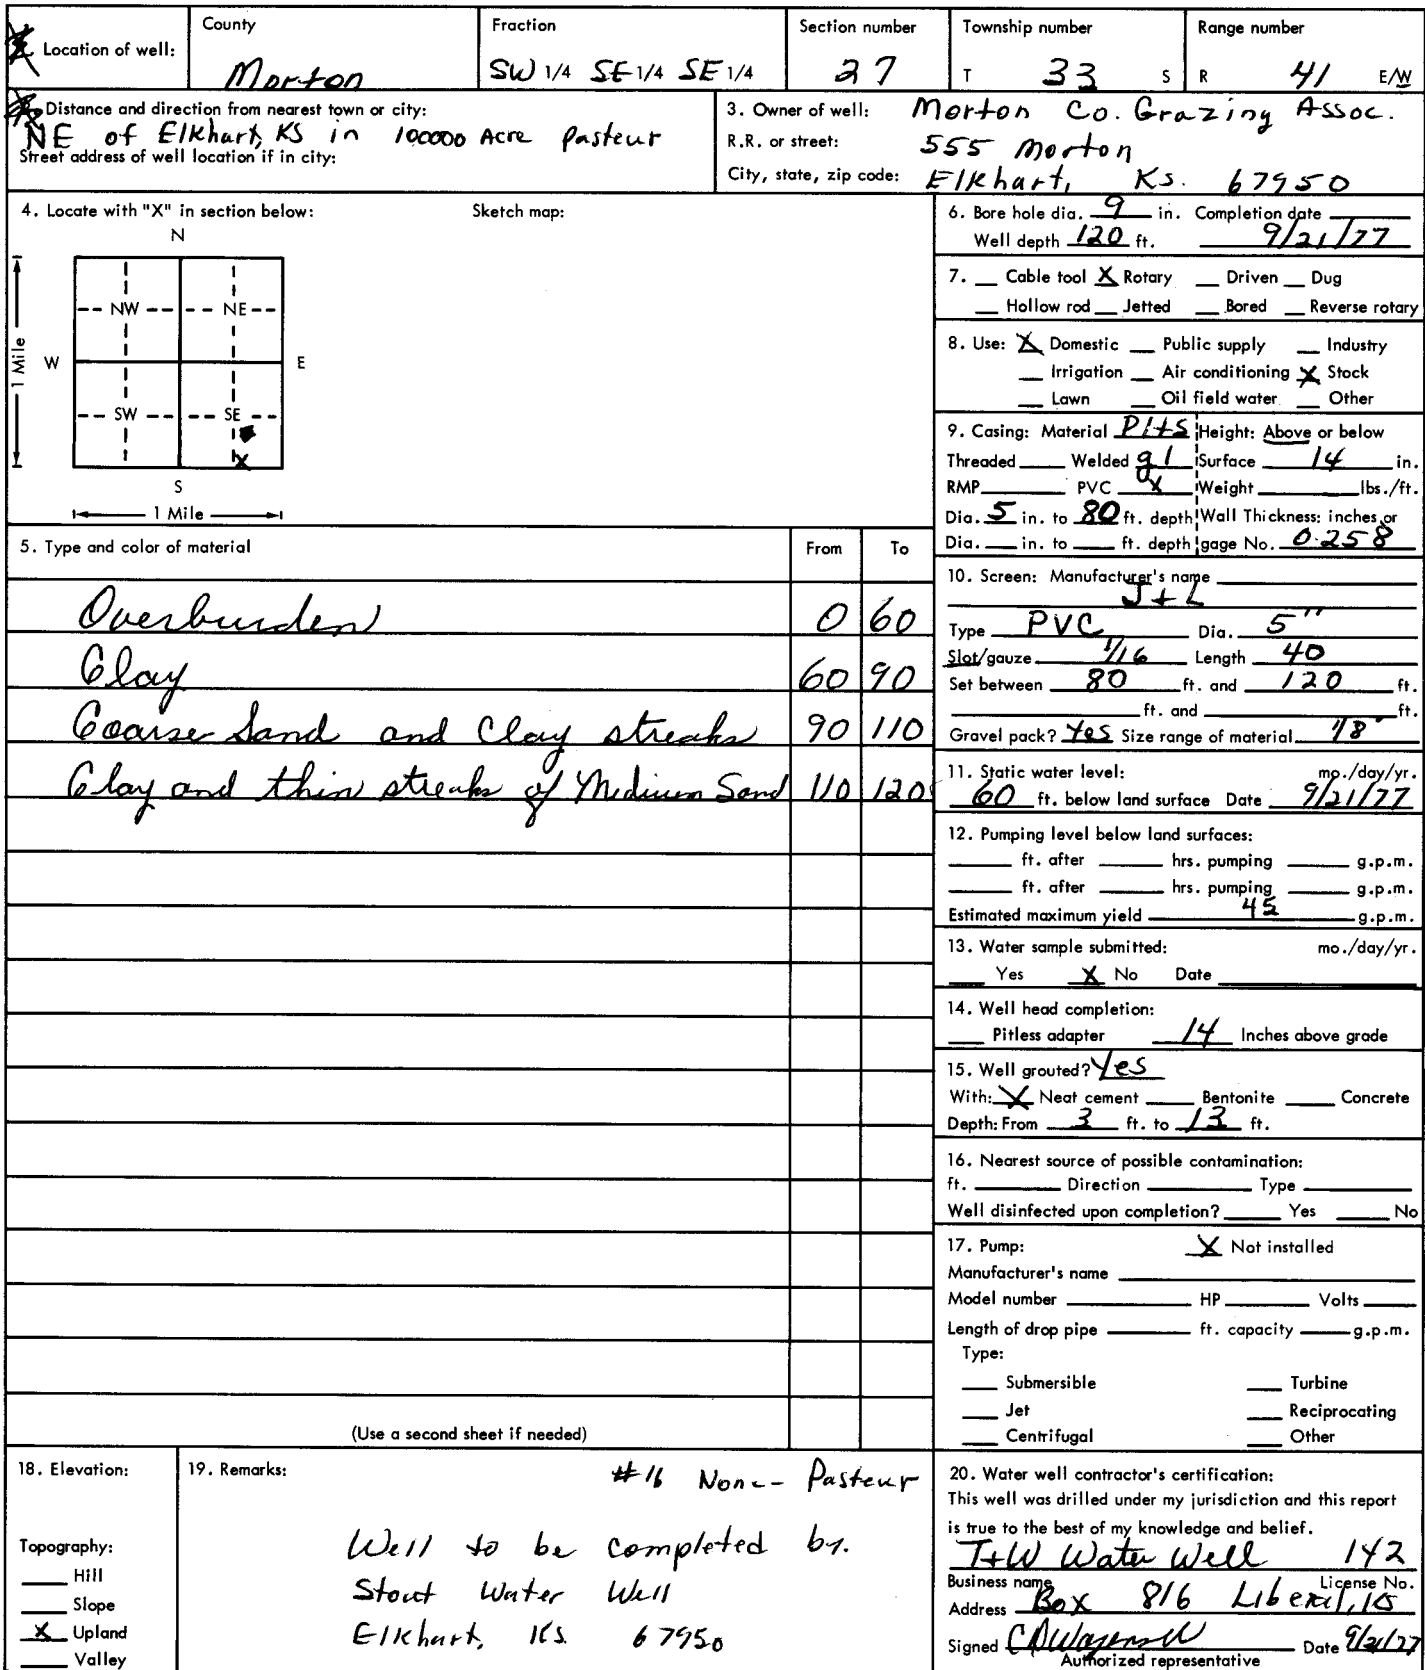 Location of well:
County
Morton
Fraction
SW 1/4 SE 1/4 SE 1/4
Section number
27
Township number
T 33 S
Range number
R 41 E/W
Distance and direction from nearest town or city:
NE of Elkhart, KS in 100000 Acre Pasteur
Street address of well location if in city:
3. Owner of well: Morton Co. Grazing Assoc.
R.R. or street: 555 Morton
City, state, zip code: Elkhart, Ks. 67950
4. Locate with "X" in section below:
Sketch map:
N
NW NE
W E
SW SE
X
S
1 Mile
1 Mile
5. Type and color of material From To
Overburden 0 60
Clay 60 90
Coarse Sand and Clay streaks 90 110
Clay and thin streaks of Medium Sand 110 120
(Use a second sheet if needed)
6. Bore hole dia. 9 in. Completion date
Well depth 120 ft. 9/21/77
7. Cable tool X Rotary Driven Dug
Hollow rod Jetted Bored Reverse rotary
8. Use: X Domestic Public supply Industry
Irrigation Air conditioning X Stock
Lawn Oil field water Other
9. Casing: Material Height: Above or below
Threaded Welded gl Surface 14 in.
RMP PVC X Weight lbs./ft.
Dia. 5 in. to 80 ft. depth Wall Thickness: inches or
Dia. in. to ft. depth gage No. 0.258
10. Screen: Manufacturer's name
J+L
Type PVC Dia. 5"
Slot/gauze 1/16 Length 40
Set between 80 ft. and 120 ft.
ft. and ft.
Gravel pack? Yes Size range of material 1/8"
11. Static water level: mo./day/yr.
60 ft. below land surface Date 9/21/77
12. Pumping level below land surfaces:
ft. after hrs. pumping g.p.m.
ft. after hrs. pumping g.p.m.
Estimated maximum yield 45 g.p.m.
13. Water sample submitted: mo./day/yr.
Yes X No Date
14. Well head completion:
Pitless adapter 14 Inches above grade
15. Well grouted? Yes
With: X Neat cement Bentonite Concrete
Depth: From 3 ft. to 13 ft.
16. Nearest source of possible contamination:
ft. Direction Type
Well disinfected upon completion? Yes No
17. Pump: X Not installed
Manufacturer's name
Model number HP Volts
Length of drop pipe ft. capacity g.p.m.
Type:
Submersible Turbine
Jet Reciprocating
Centrifugal Other
18. Elevation:
Topography:
Hill
Slope
X Upland
Valley
19. Remarks:
#16 None - Pasteur
Well to be completed by.
Stout Water Well
Elkhart, Ks. 67950
20. Water well contractor's certification:
This well was drilled under my jurisdiction and this report
is true to the best of my knowledge and belief.
T+W Water Well 142
Business name License No.
Address Box 816 Liberal, KS
Signed Date 9/21/77
Authorized representative